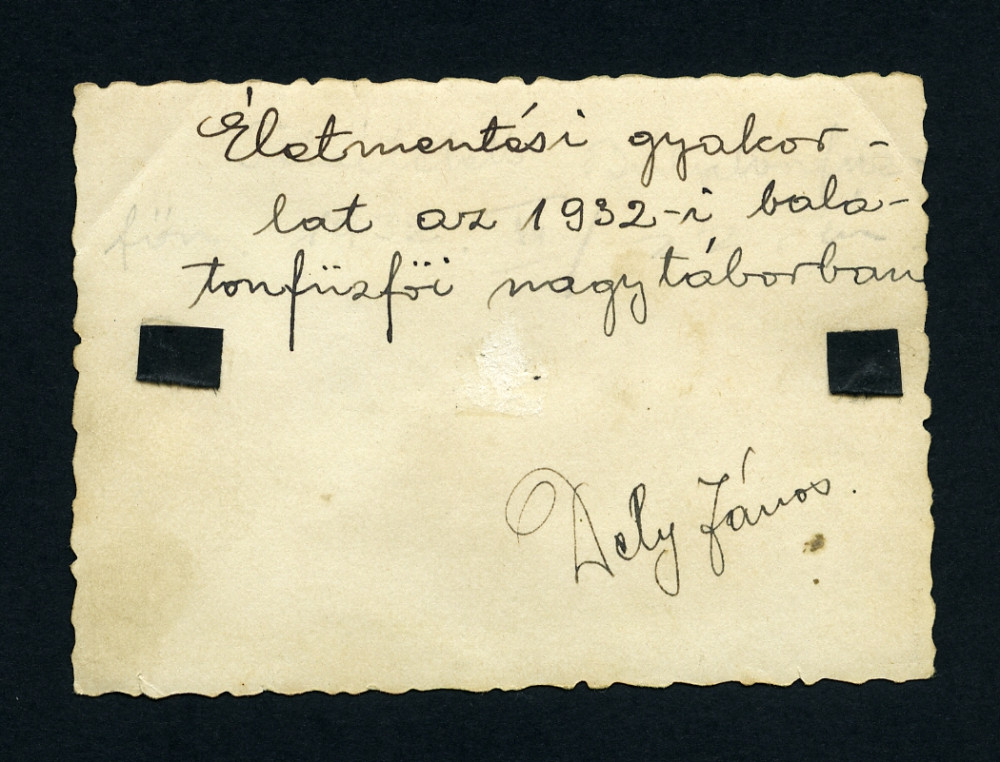 Életmentési gyakor-
lat az 1932-i bala-
tonfüzföi nagytáborban
Dely János.